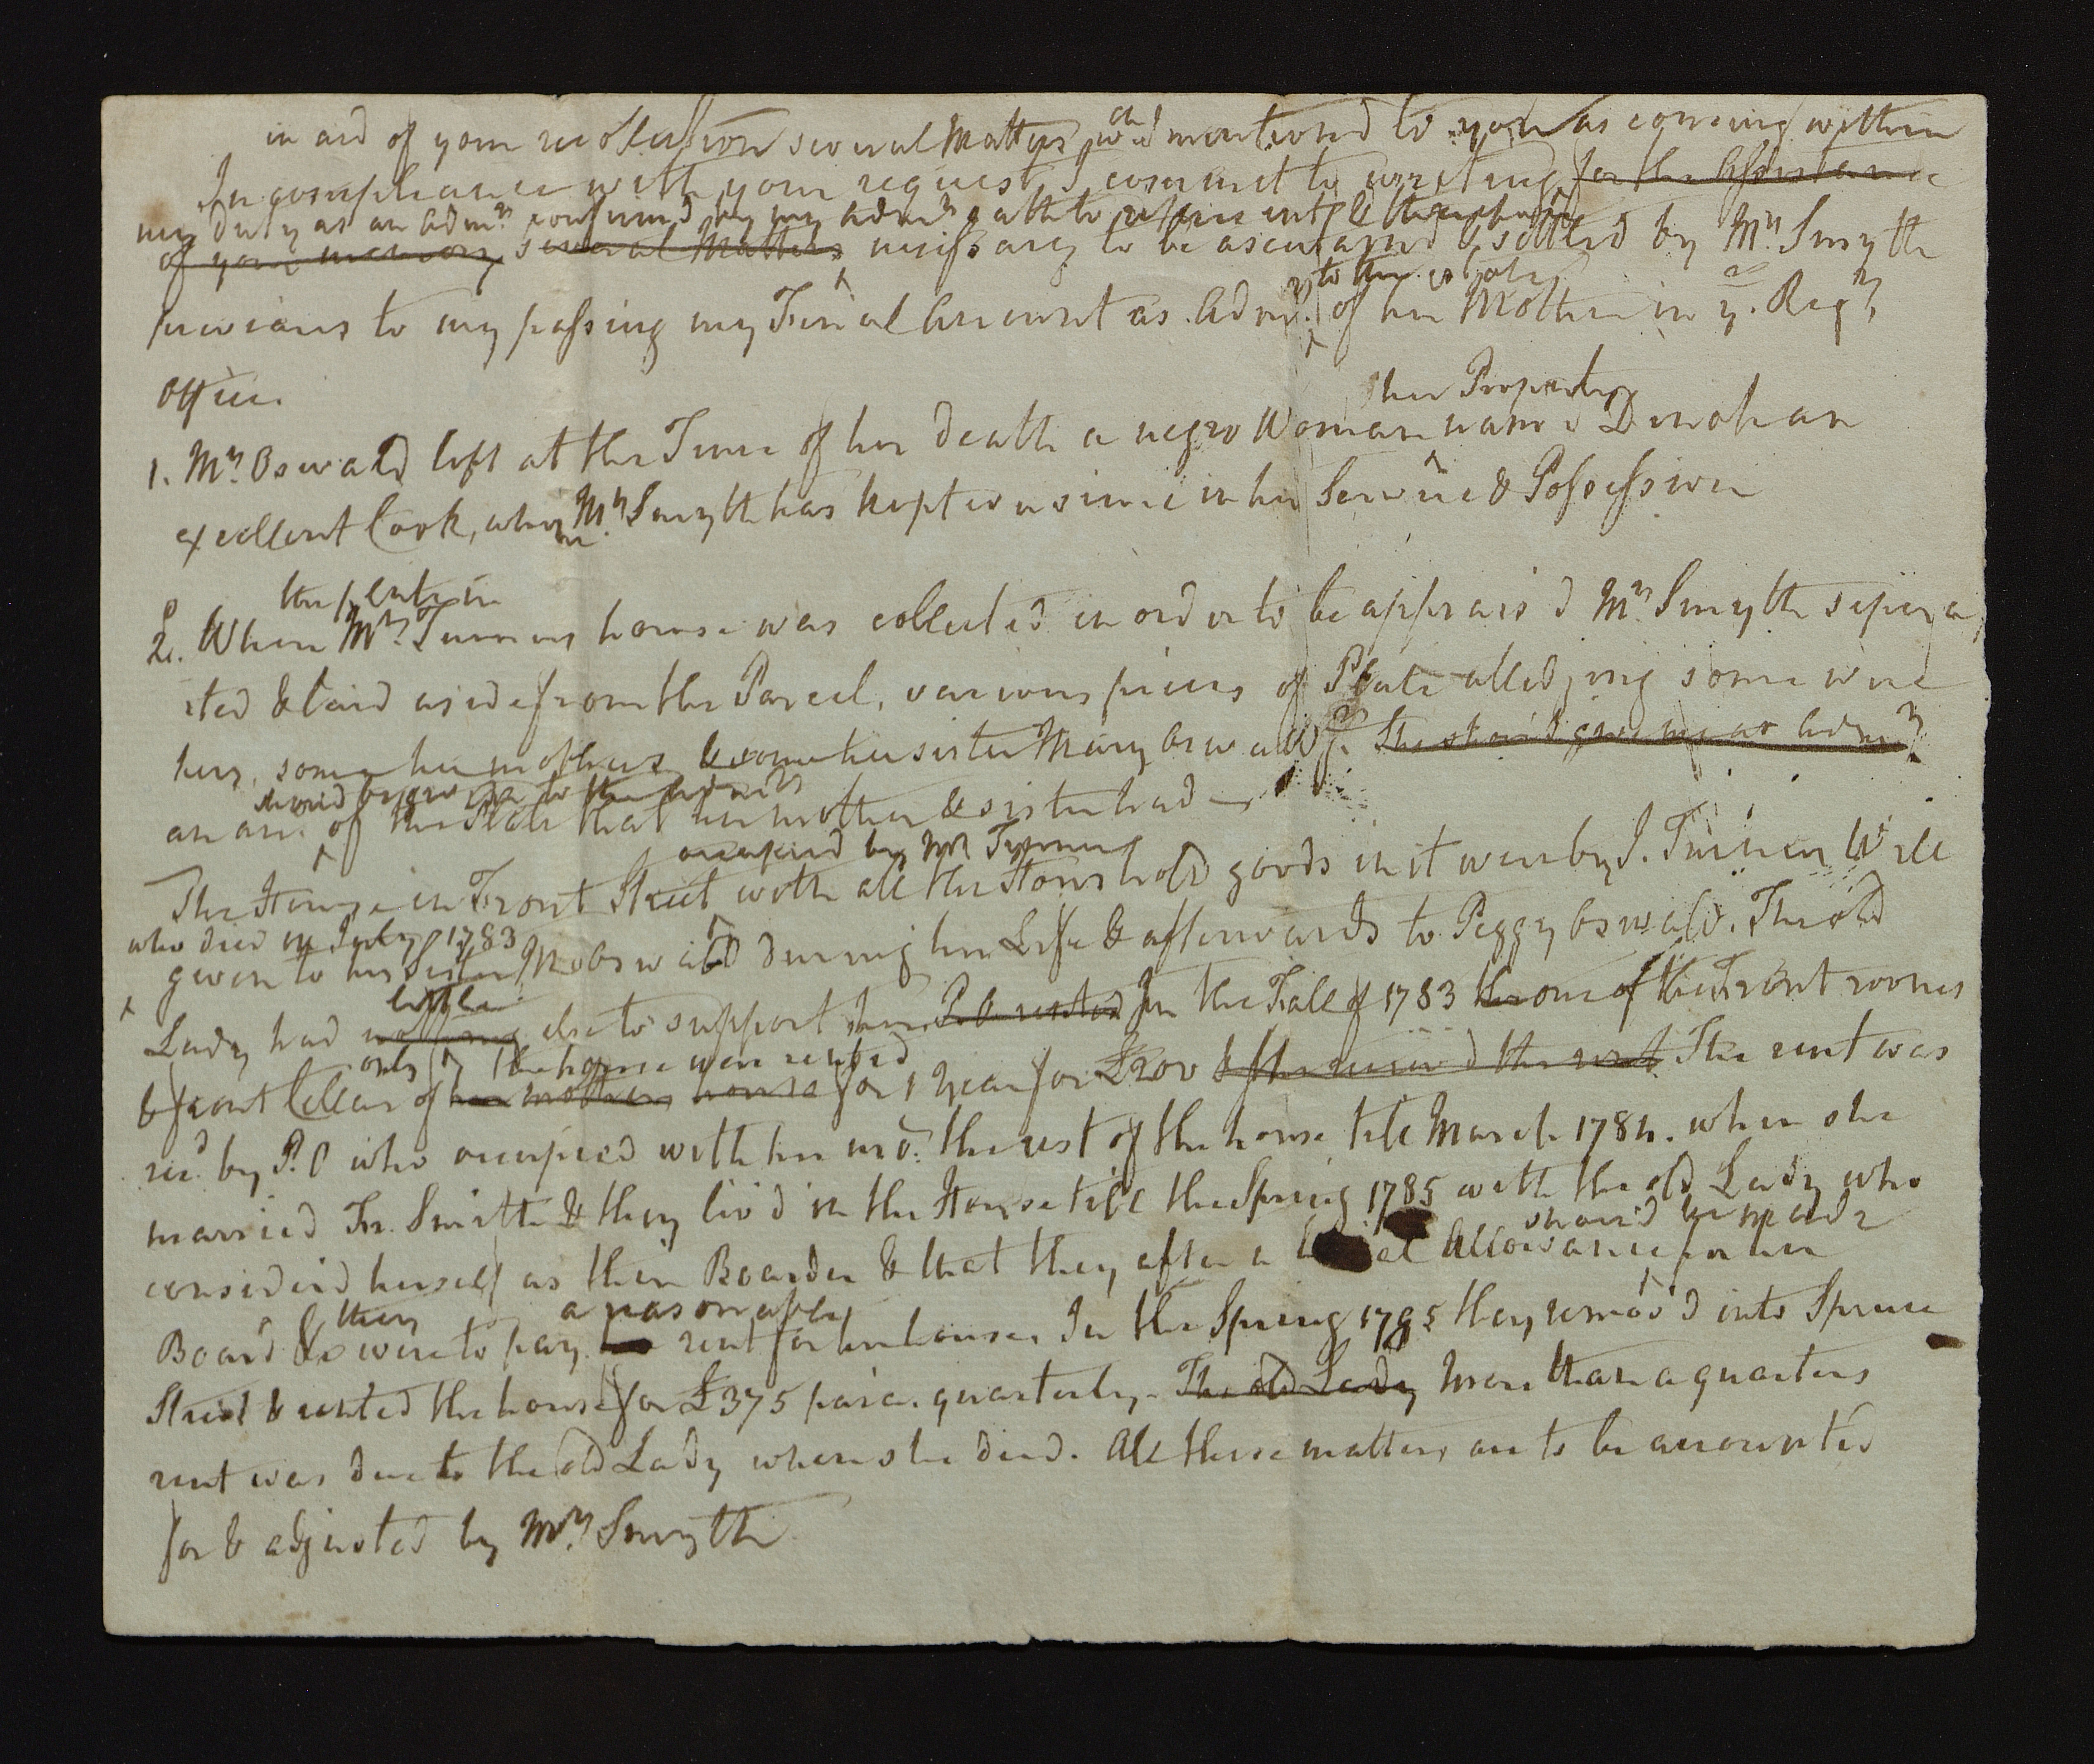 in aid of your recollection several Matters wch I mentioned to you as coming within
In compliance with your request I commit to writing for the Assistance
my duty as an Admr. confirm'd by my Admrs oath to
of your memory several Matters necessary to be ascertained & settled by Mrs. Smyth
to the estate
previous to my passing my Final Account as Admr. of her Mother in ye. Regrs
Office.
her Property
1. Mrs. Oswald left at the Time of her death a negro Woman named Dinah an
excellent Cook, whom Mrs. Smyth has kept ever since in her Service & Possession
the plate in
2. When Mrs. Turners house was collected in order to be apprais'd Mrs. Smyth separa
ted & laid aside from the Parcel, various pieces of Plate alledging some were
hers, some her mothers & some her sister Mary Oswalds. She should give me as Admr.
should be given to the Admrs
an acct. of the Plate that her mother & sister had
occupied by Mr Turner
The House in Front Street with all the Household goods in it were by J. Turners Will
who died in July 1783
given to his Sister M Oswald during her Life & afterwards to Peggy Oswald. The old
little
Lady had nothing else to support her P.O. rented In the Fall of 1783 the one of the Front rooms
only the house were rented
& front Cellar of her mothers house for 1 year for £200 & she received the rent The rent was
recd. by P. O who occupied with her mor. the rest of the house till March 1784. when she
married Fr. Smith & they liv'd in the House till the Spring 1785 with the old Lady who
should be made
considerd herself as their Boarder & that they after a Allowance for her
they a reasonable
Board & were to pay rent for her house. In the Spring 1785 they remov'd into Spruce
Street & rented the house for £375 pa. quarterly. The old Lady More than a quarters
rent was due to the old Lady when she died. All these matters are to be accounted
for & adjusted by Mrs. Smyth